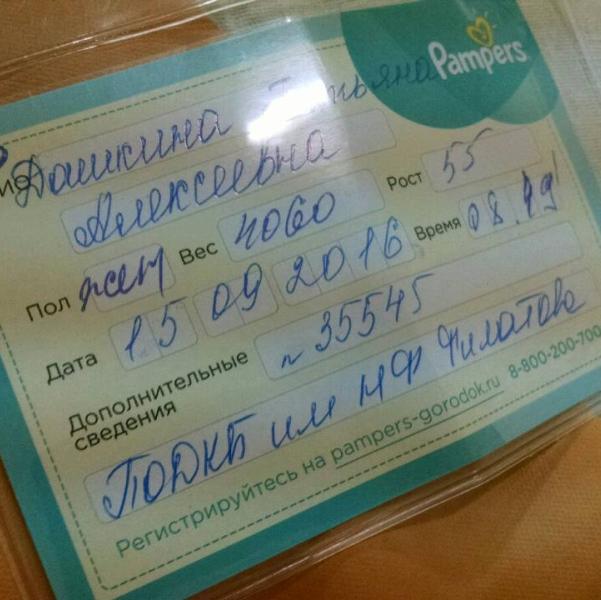 Pampers
Дашкина Татьяна
Алексеевна
Пол жен Вес 4060 Рост 55
Дата 15 09 2016 Время 08.49
Дополнительные
сведения
~ 35545
ПОДКБ им НФ Филатова
Регистрируйтесь на pampers-gorodok.ru 8-800-200-700